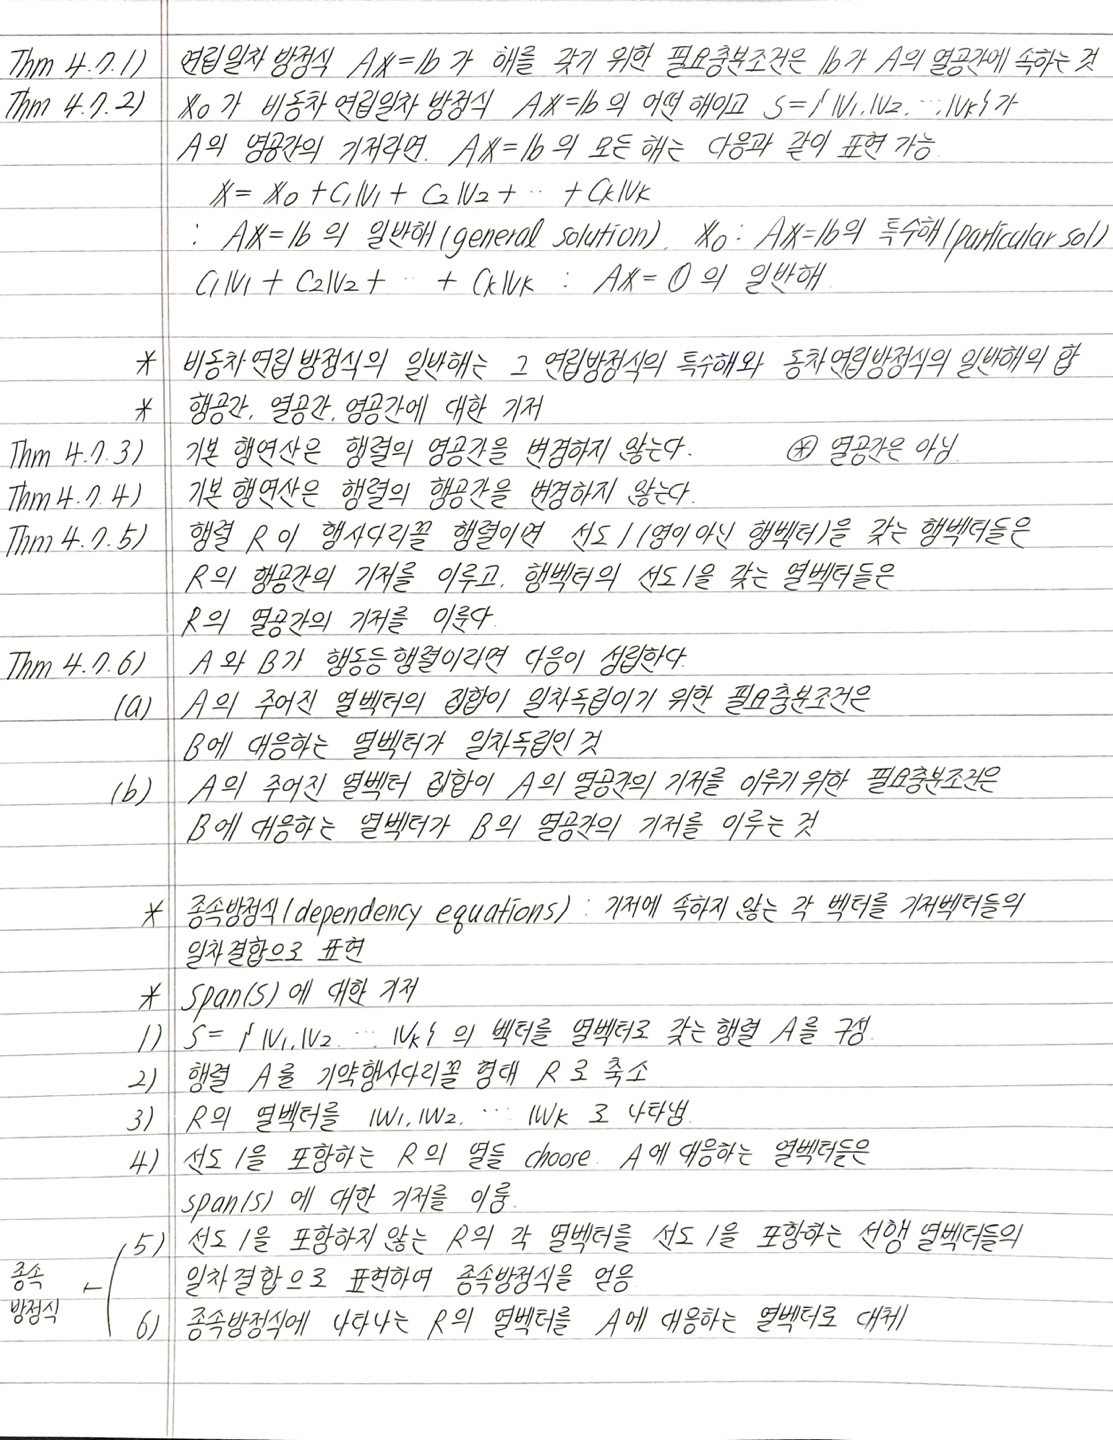 Thm 4.7.1) 연립일차 방정식 Ax=b가 해를 갖기 위한 필요충분조건은 b가 A의 열공간에 속하는 것
Thm 4.7.2) x₀가 비동차 연립일차 방정식 Ax=b의 어떤 해이고 S={v₁,v₂, …,vₖ}가
A의 영공간의 기저라면, Ax=b의 모든 해는 다음과 같이 표현 가능
x = x₀ + c₁v₁ + c₂v₂ + … + cₖvₖ
: Ax=b의 일반해(general solution), x₀: Ax=b의 특수해(particular sol)
c₁v₁ + c₂v₂ + … + cₖvₖ : Ax=0의 일반해
* 비동차 연립 방정식의 일반해는 그 연립방정식의 특수해와 동차 연립방정식의 일반해의 합
* 행공간, 열공간, 영공간에 대한 기저
Thm 4.7.3) 기본 행연산은 행렬의 영공간을 변경하지 않는다. ⊛ 열공간은 아님
Thm 4.7.4) 기본 행연산은 행렬의 행공간을 변경하지 않는다.
Thm 4.7.5) 행렬 R이 행사다리꼴 행렬이면 선도 1(영이 아닌 행벡터)을 갖는 행벡터들은
R의 행공간의 기저를 이루고, 행벡터의 선도 1을 갖는 열벡터들은
R의 열공간의 기저를 이룬다.
Thm 4.7.6) A와 B가 행동등 행렬이라면 다음이 성립한다.
(a) A의 주어진 열벡터의 집합이 일차독립이기 위한 필요충분조건은
B에 대응하는 열벡터가 일차독립인 것
(b) A의 주어진 열벡터 집합이 A의 열공간의 기저를 이루기 위한 필요충분조건은
B에 대응하는 열벡터가 B의 열공간의 기저를 이루는 것
* 종속방정식(dependency equations) : 기저에 속하지 않는 각 벡터를 기저벡터들의
일차결합으로 표현
* span(S)에 대한 기저
1) S={v₁,v₂ … vₖ}의 벡터를 열벡터로 갖는 행렬 A를 구성.
2) 행렬 A를 기약행사다리꼴 형태 R로 축소
3) R의 열벡터를 w₁,w₂, … wₖ로 나타냄.
4) 선도 1을 포함하는 R의 열들 choose. A에 대응하는 열벡터들은
span(S)에 대한 기저를 이룸.
5) 선도 1을 포함하지 않는 R의 각 열벡터를 선도 1을 포함하는 선행 열벡터들의
일차결합으로 표현하여 종속방정식을 얻음
종속
방정식 ←
6) 종속방정식에 나타나는 R의 열벡터를 A에 대응하는 열벡터로 대체